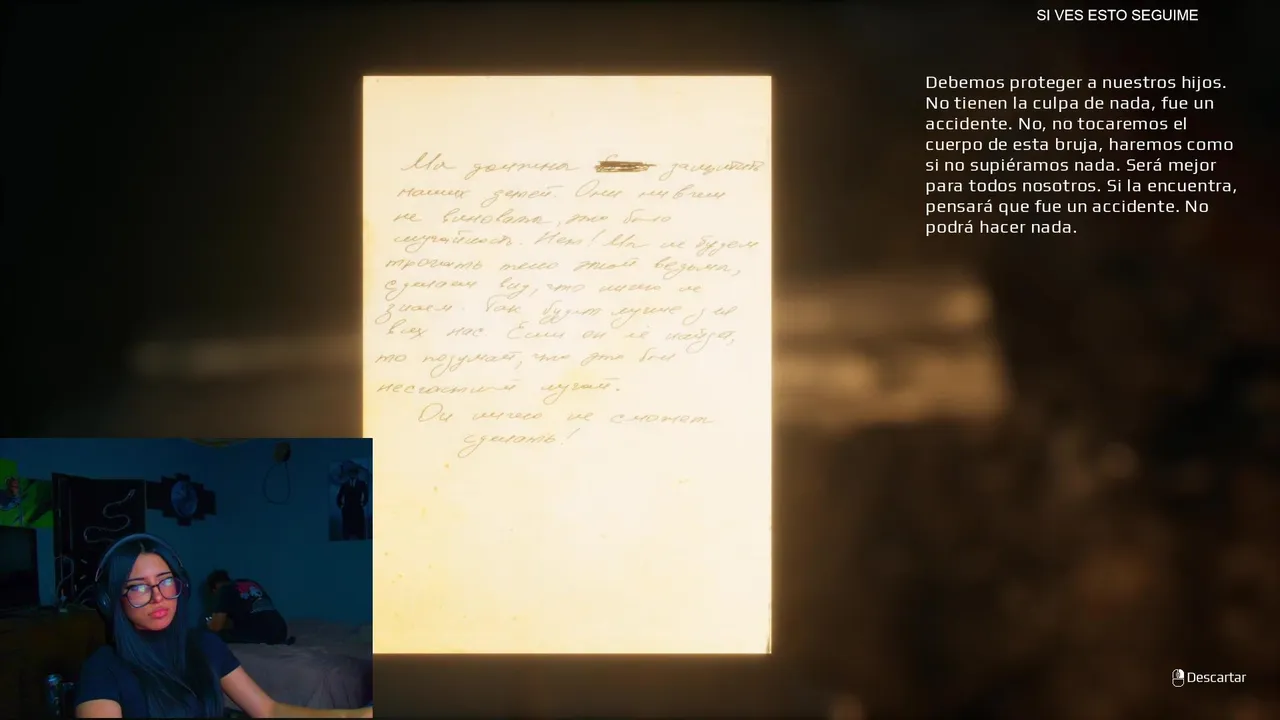 SI VES ESTO SEGUIME
Debemos proteger a nuestros hijos.
No tienen la culpa de nada, fue un
accidente. No, no tocaremos el
cuerpo de esta bruja, haremos como
si no supiéramos nada. Será mejor
para todos nosotros. Si la encuentra,
pensará que fue un accidente. No
podrá hacer nada.
Мы должны защитить
наших детей. Они ни в чем
не виноваты, это была
случайность. Нет! Мы не будем
трогать тело этой ведьмы,
сделаем вид, что ничего не
знаем. Так будет лучше для
всех нас. Если он её найдет,
то подумает, что это был
несчастный случай.
Он ничего не сможет
сделать!
Descartar